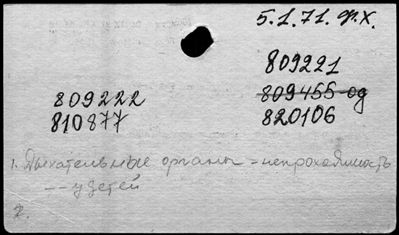 5.1.71. Ф.Х.
809221
809455-од
820106
809222
810877
1. Дыхательные органы - непроходимость
-- у детей
2.